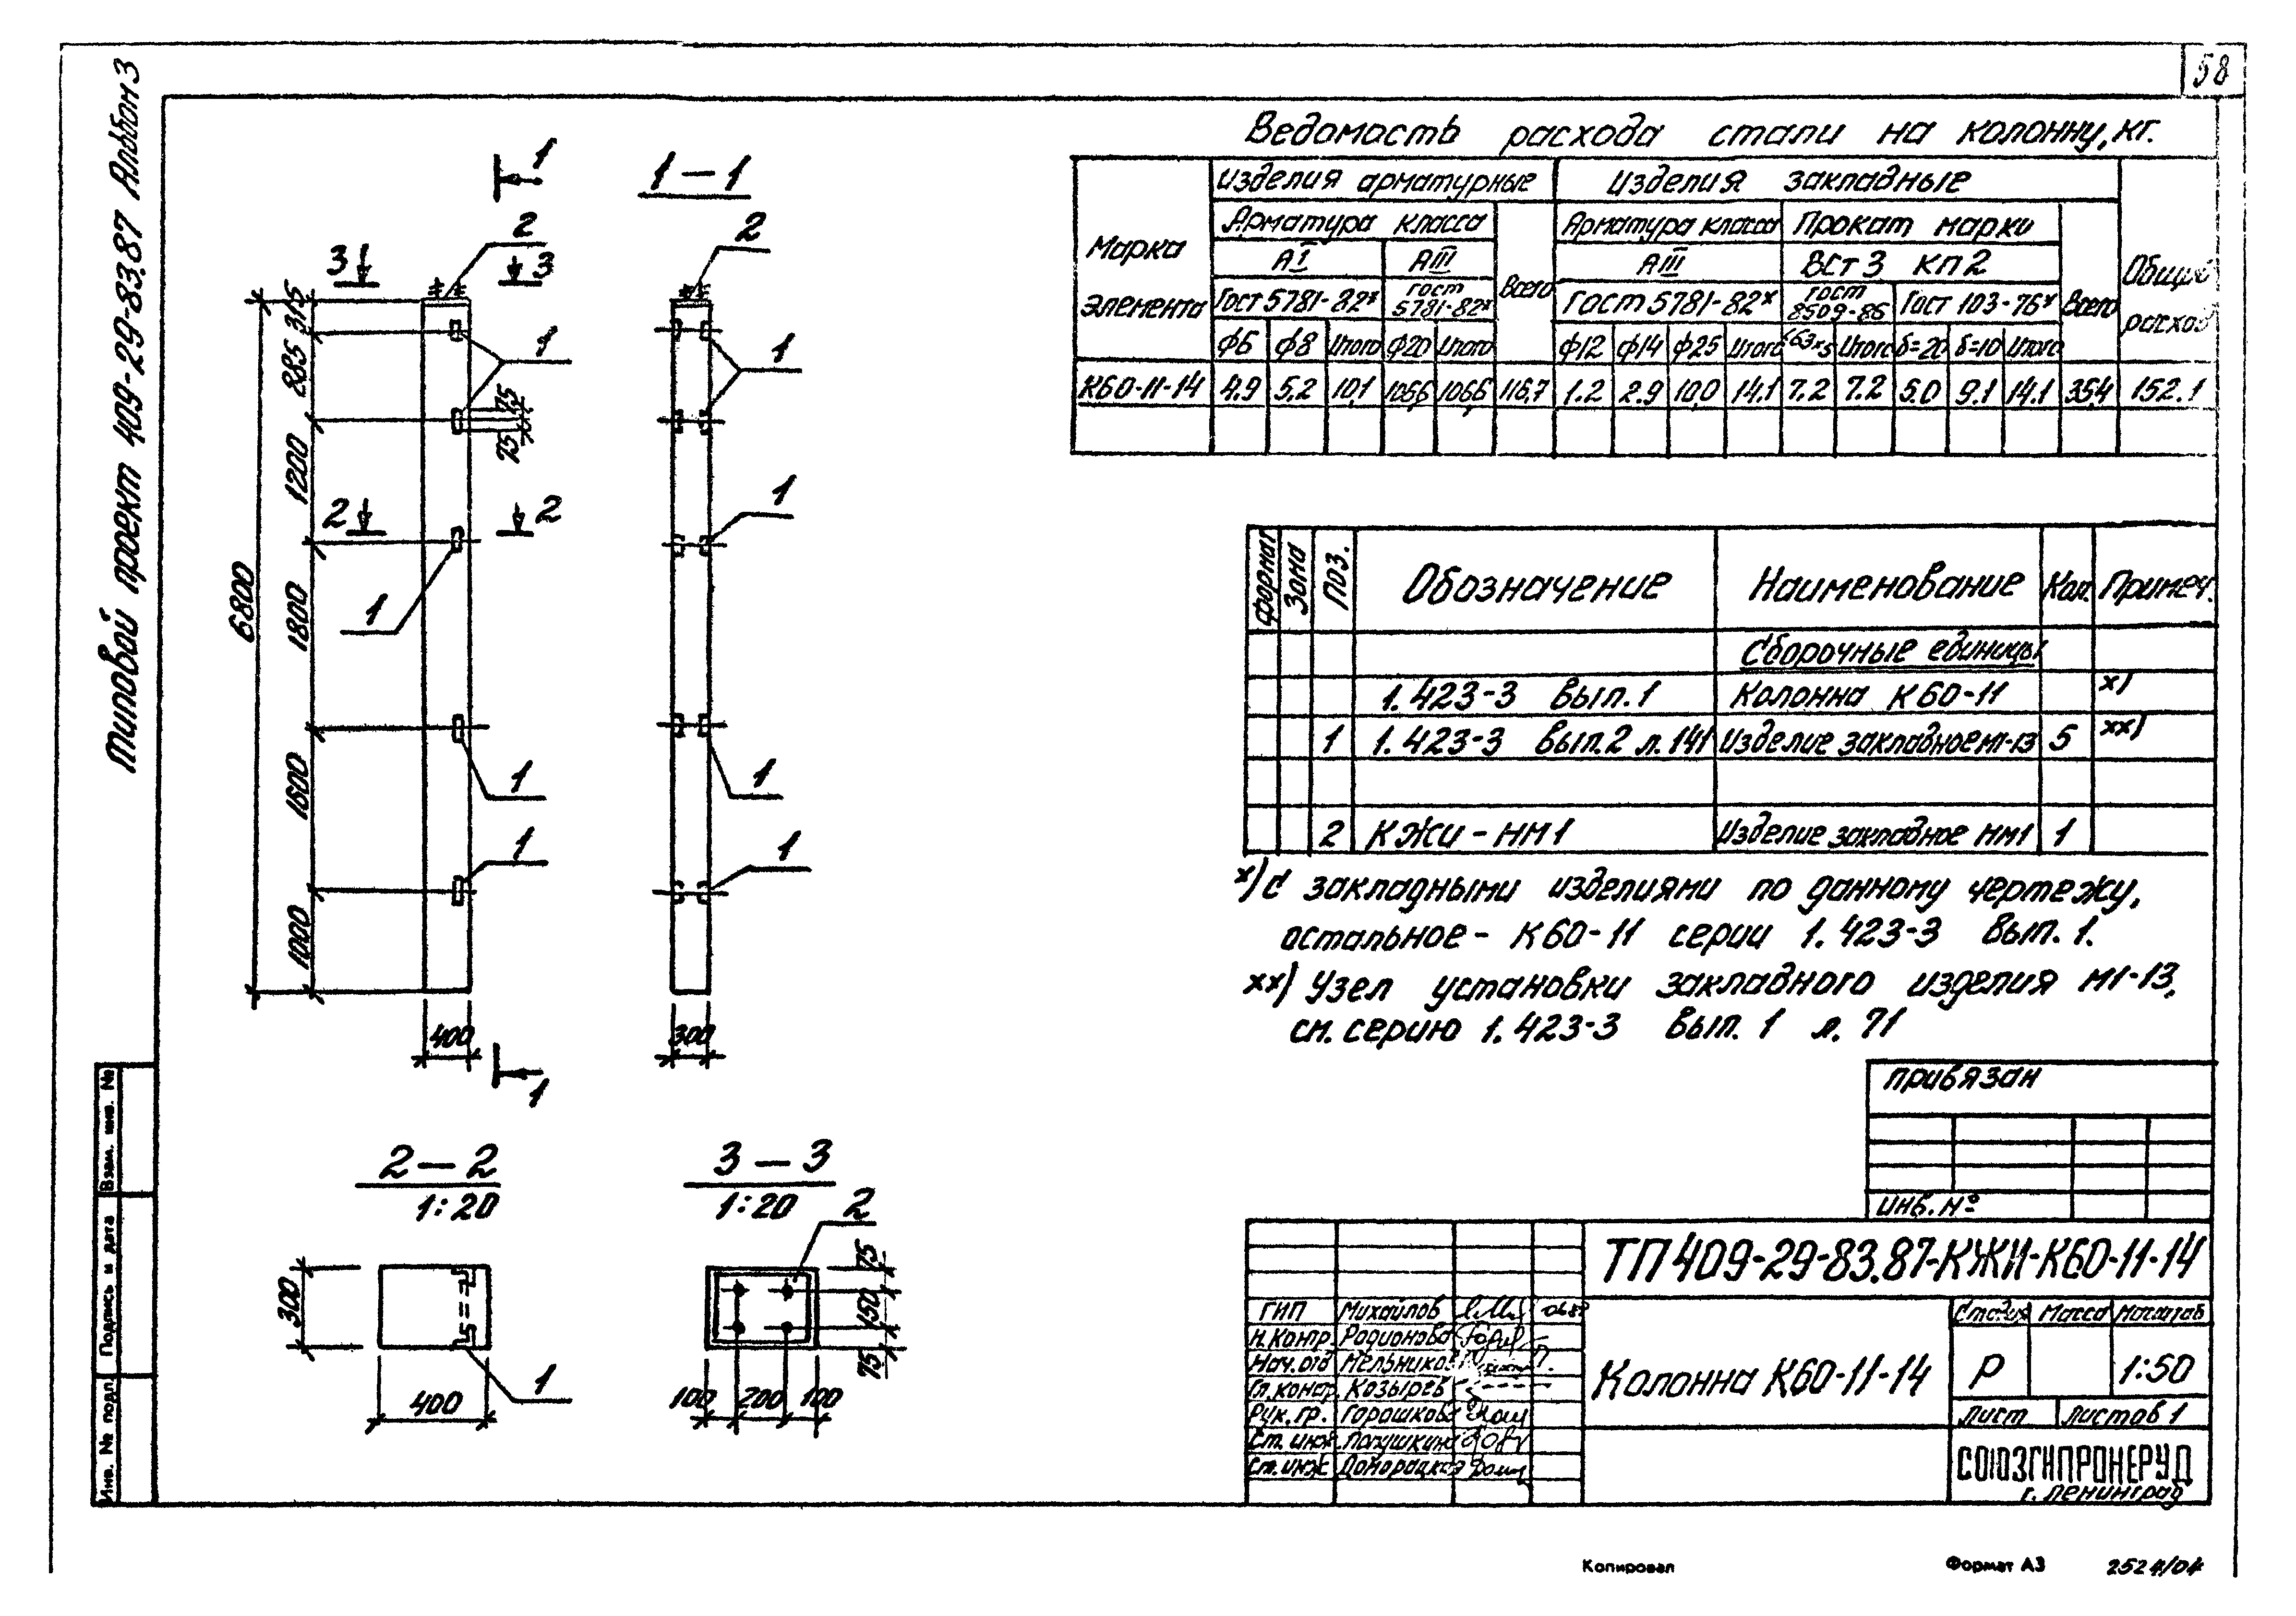 58
Типовой проект 409-29-83.87 Альбом 3
Ведомость расхода стали на колонну, кг.
Марка элемента
Изделия арматурные
Изделия закладные
Общий расход
Арматура класса
Всего
Арматура класса
Прокат марки
Всего
АI
АIII
АIII
ВСт3 кп2
Гост 5781-82*
Гост 5781-82*
Гост 5781-82*
Гост 8509-86
Гост 103-76*
ф6 ф8 Итого ф20 Итого ф12 ф14 ф25 Итого L63×5 Итого δ=20 δ=10 Итого
К60-11-14 4.9 5,2 10,1 106,6 106,6 116,7 1.2 2.9 10,0 14.1 7.2 7.2 5.0 9.1 14.1 35,4 152.1
1
1-1
2
2
3
3
1
1
75
75
2
2
1
1
1
1
1
1
1
315
885
1200
1800
1600
1000
6800
400
300
1
2-2
1:20
300
400
1
3-3
1:20
2
75
150
75
100 200 100
Формат Зона Поз. Обозначение Наименование Кол. Примеч.
Сборочные единицы
1.423-3 вып.1 Колонна К60-11 х)
1 1.423-3 вып.2 л.141 Изделие закладное М1-13 5 хх)
2 КЖИ-НМ1 Изделие закладное НМ1 1
х) С закладными изделиями по данному чертежу,
остальное - К60-11 серии 1.423-3 вып. 1.
хх) Узел установки закладного изделия М1-13,
см. серию 1.423-3 вып. 1 л. 71
Привязан
Инв. №
ТП 409-29-83.87-КЖИ-К60-11-14
ГИП Михайлов
Н.контр. Родионова
Нач.отд Мельников
Гл.констр. Козырев
Рук.гр. Горашкова
Ст. инж. Лапушкина
Ст. инж
Колонна К60-11-14
Стадия Масса Масштаб
Р 1:50
Лист Листов 1
СОЮЗГИПРОНЕРУД
г. Ленинград
Взам. инв. №
Подпись и дата
Инв. № подл.
Копировал
Формат А3
2524/04